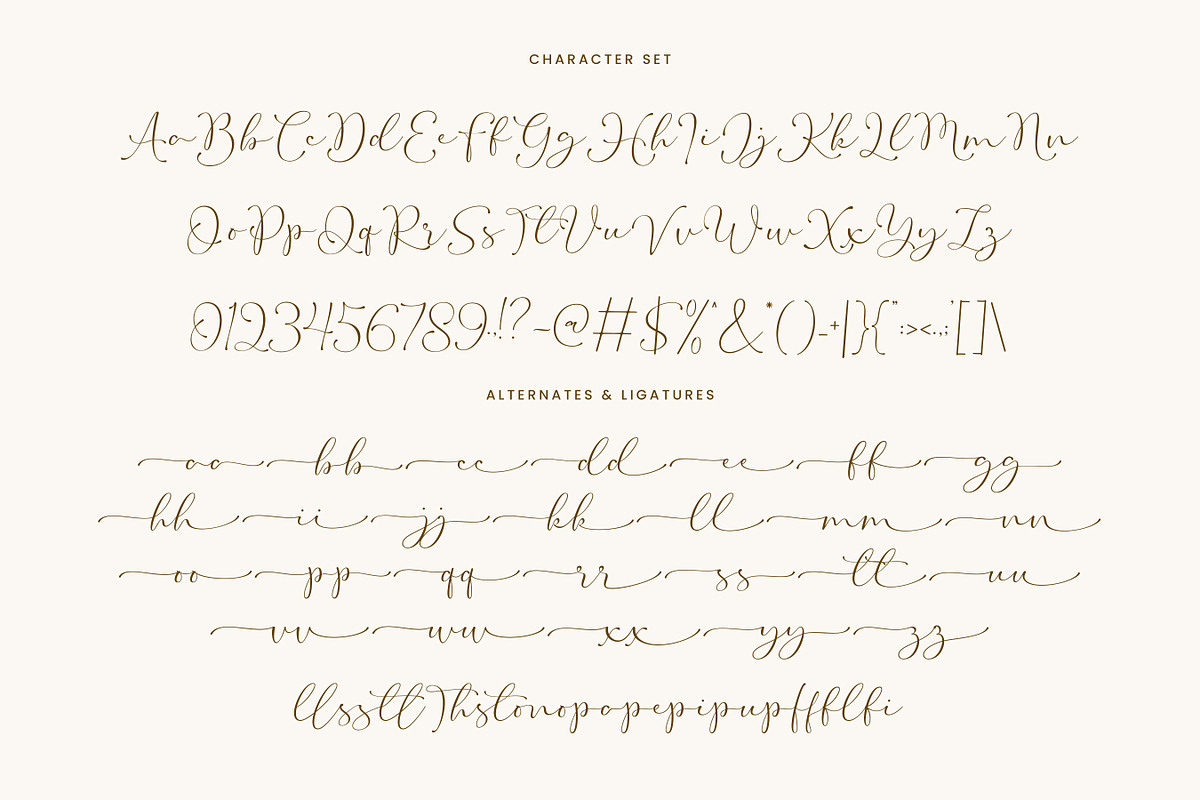 CHARACTER SET
AaBbCcDdEeFfGgHhIiJjKkLlMmNn
OoPpQqRrSsTtUuVvWwXxYyZz
0123456789.,!?~@#$%^&*()-+|}{":><.,;'[]\
ALTERNATES & LIGATURES
aa bb cc dd ee ff gg
hh ii jj kk ll mm nn
oo pp qq rr ss tt uu
vv ww xx yy zz
llssttThstonopapepipupffflfi